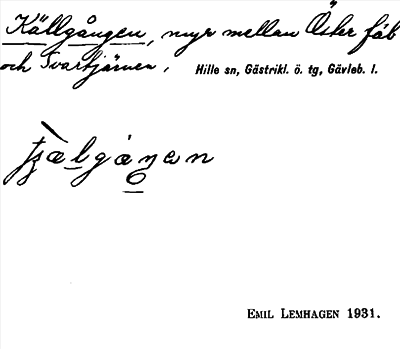 Källgången, myr mellan Öster fäb
och Svartjärnen, Hille sn, Gästrikl. ö. tg, Gävleb. l.
EMIL LEMHAGEN 1931.